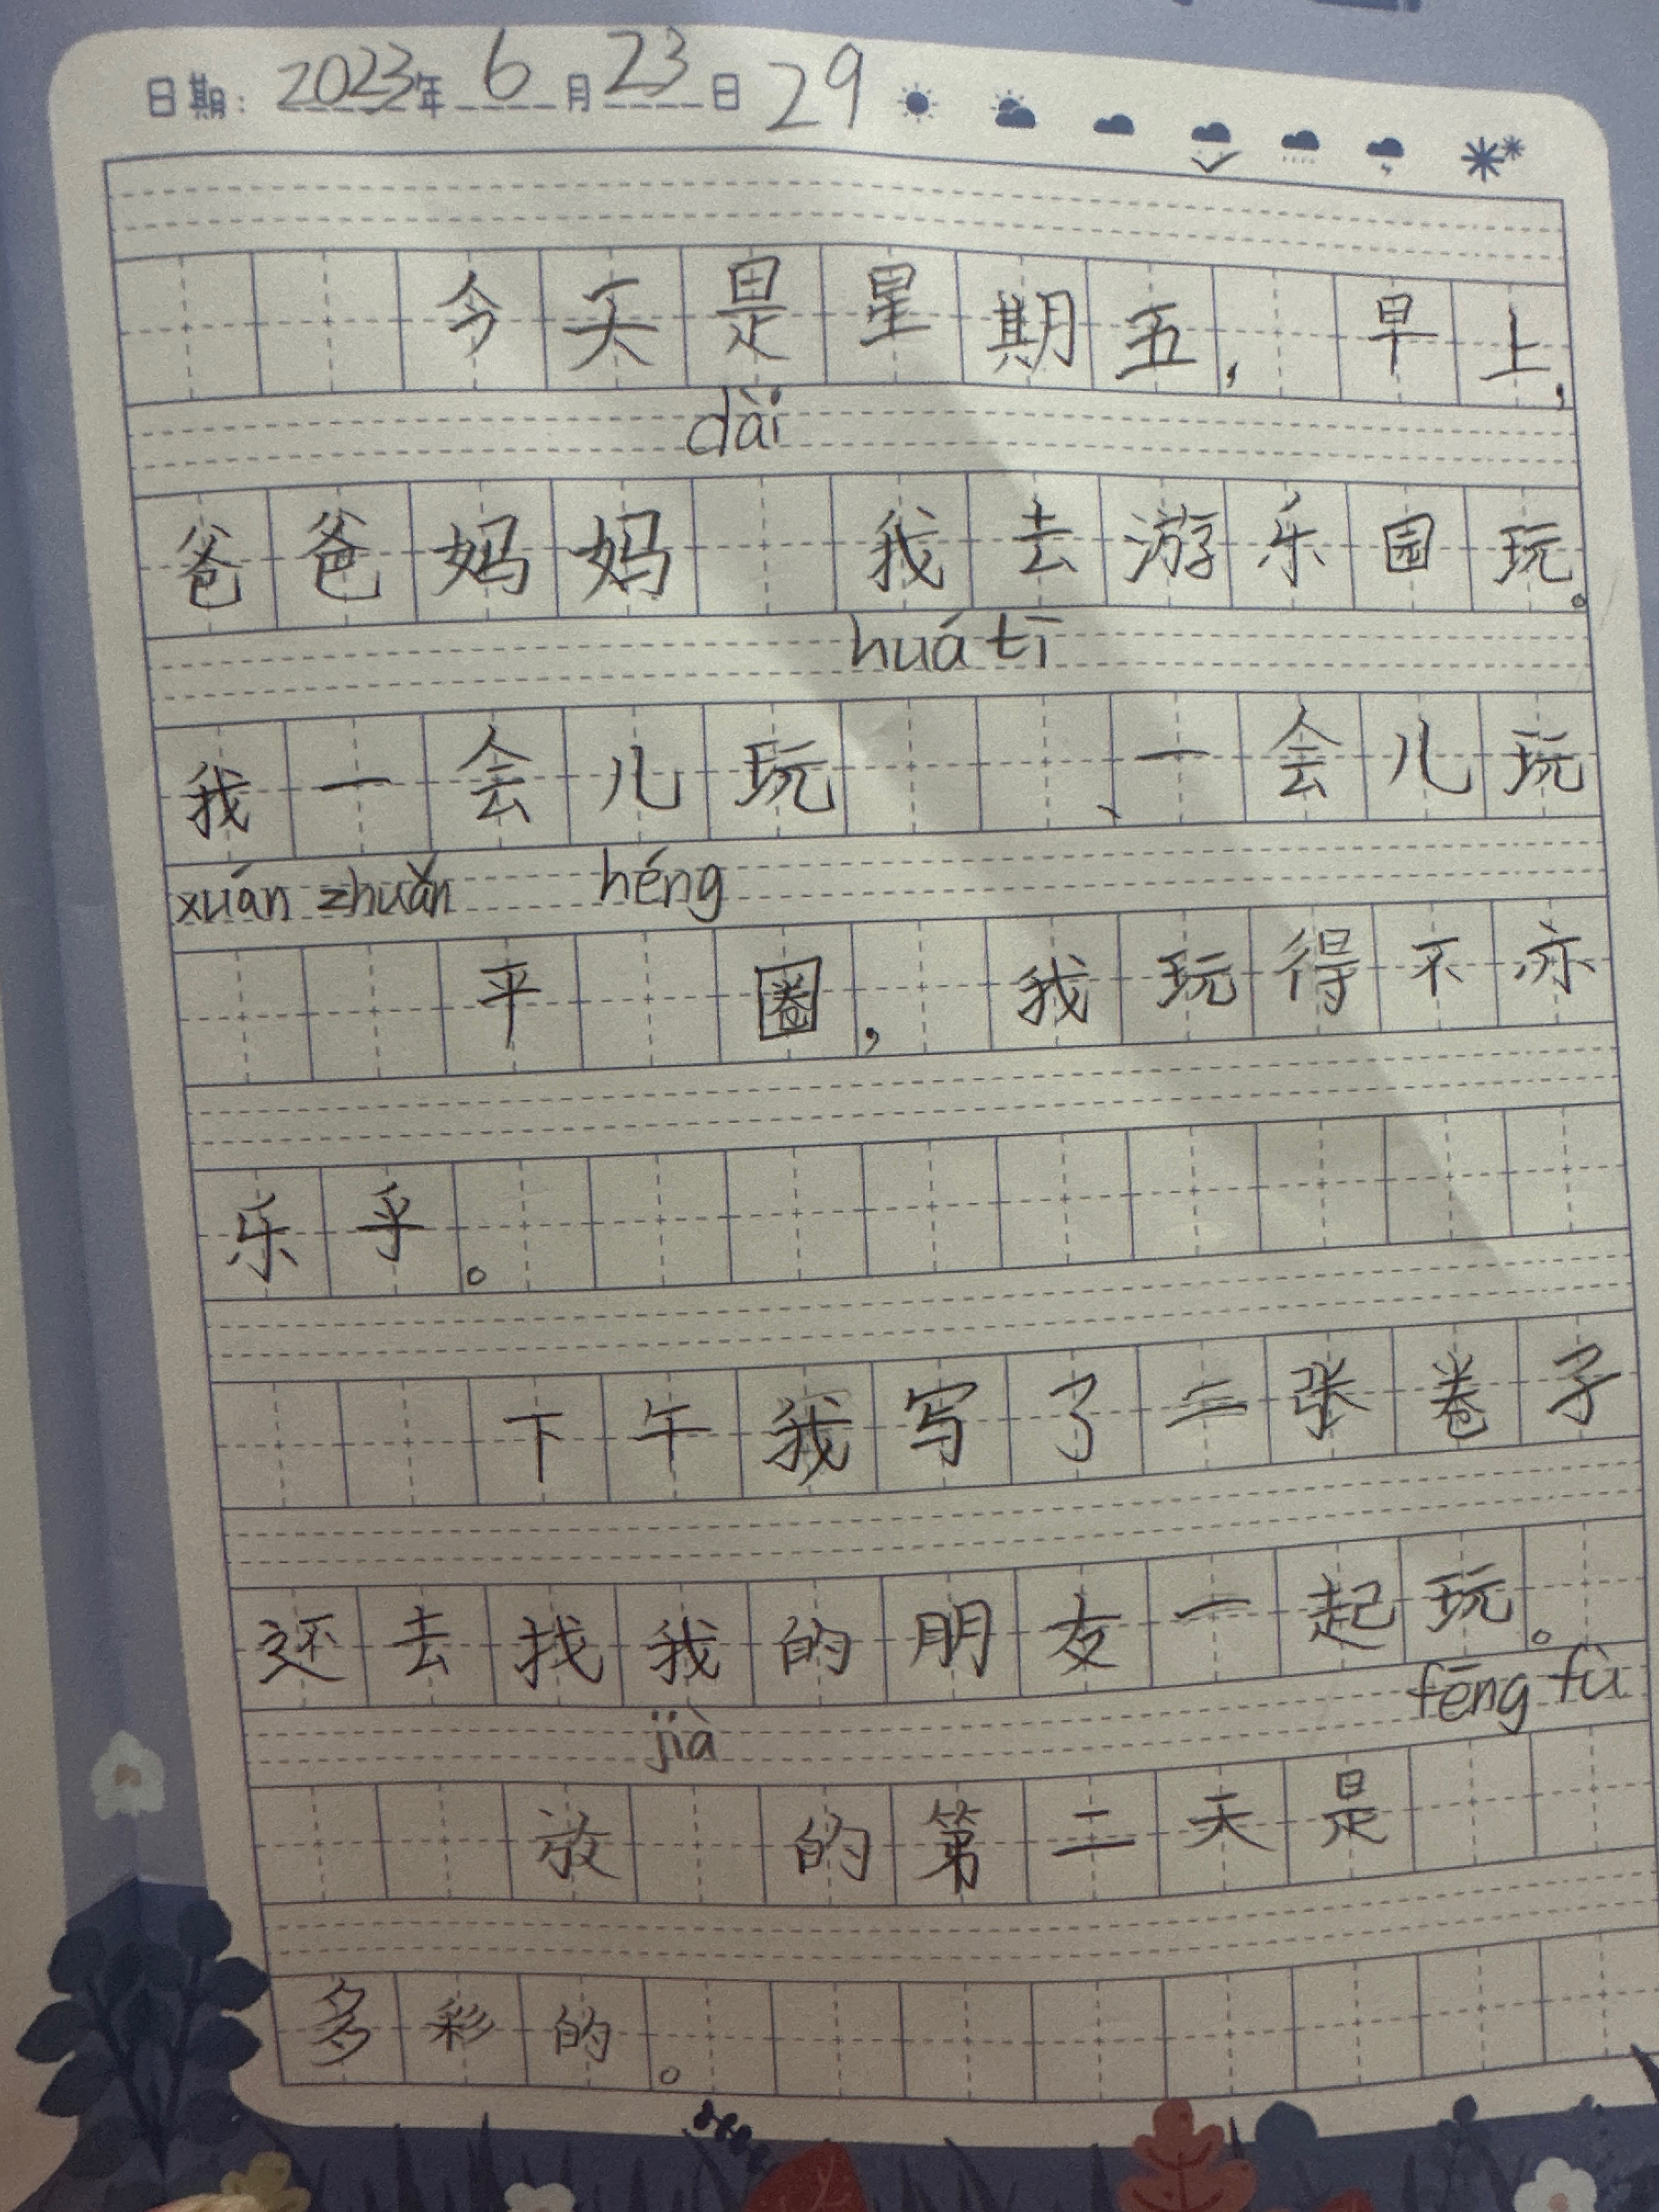 日期：2023年6月23日 29
今天是星期五，早上，
dài
爸爸妈妈 我去游乐园玩。
huá tī
我一会儿玩 、一会儿玩
xuán zhuǎn héng
平 圈，我玩得不亦
乐乎。
下午我写了二张卷子
还去找我的朋友一起玩。
jià fēng fù
放 的第二天是
多彩的。